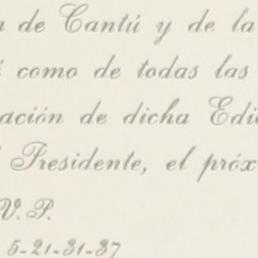 de Cantú y de la
como de todas las
ación de dicha Edi
Presidente, el próx
V. P.
5-21-31-37